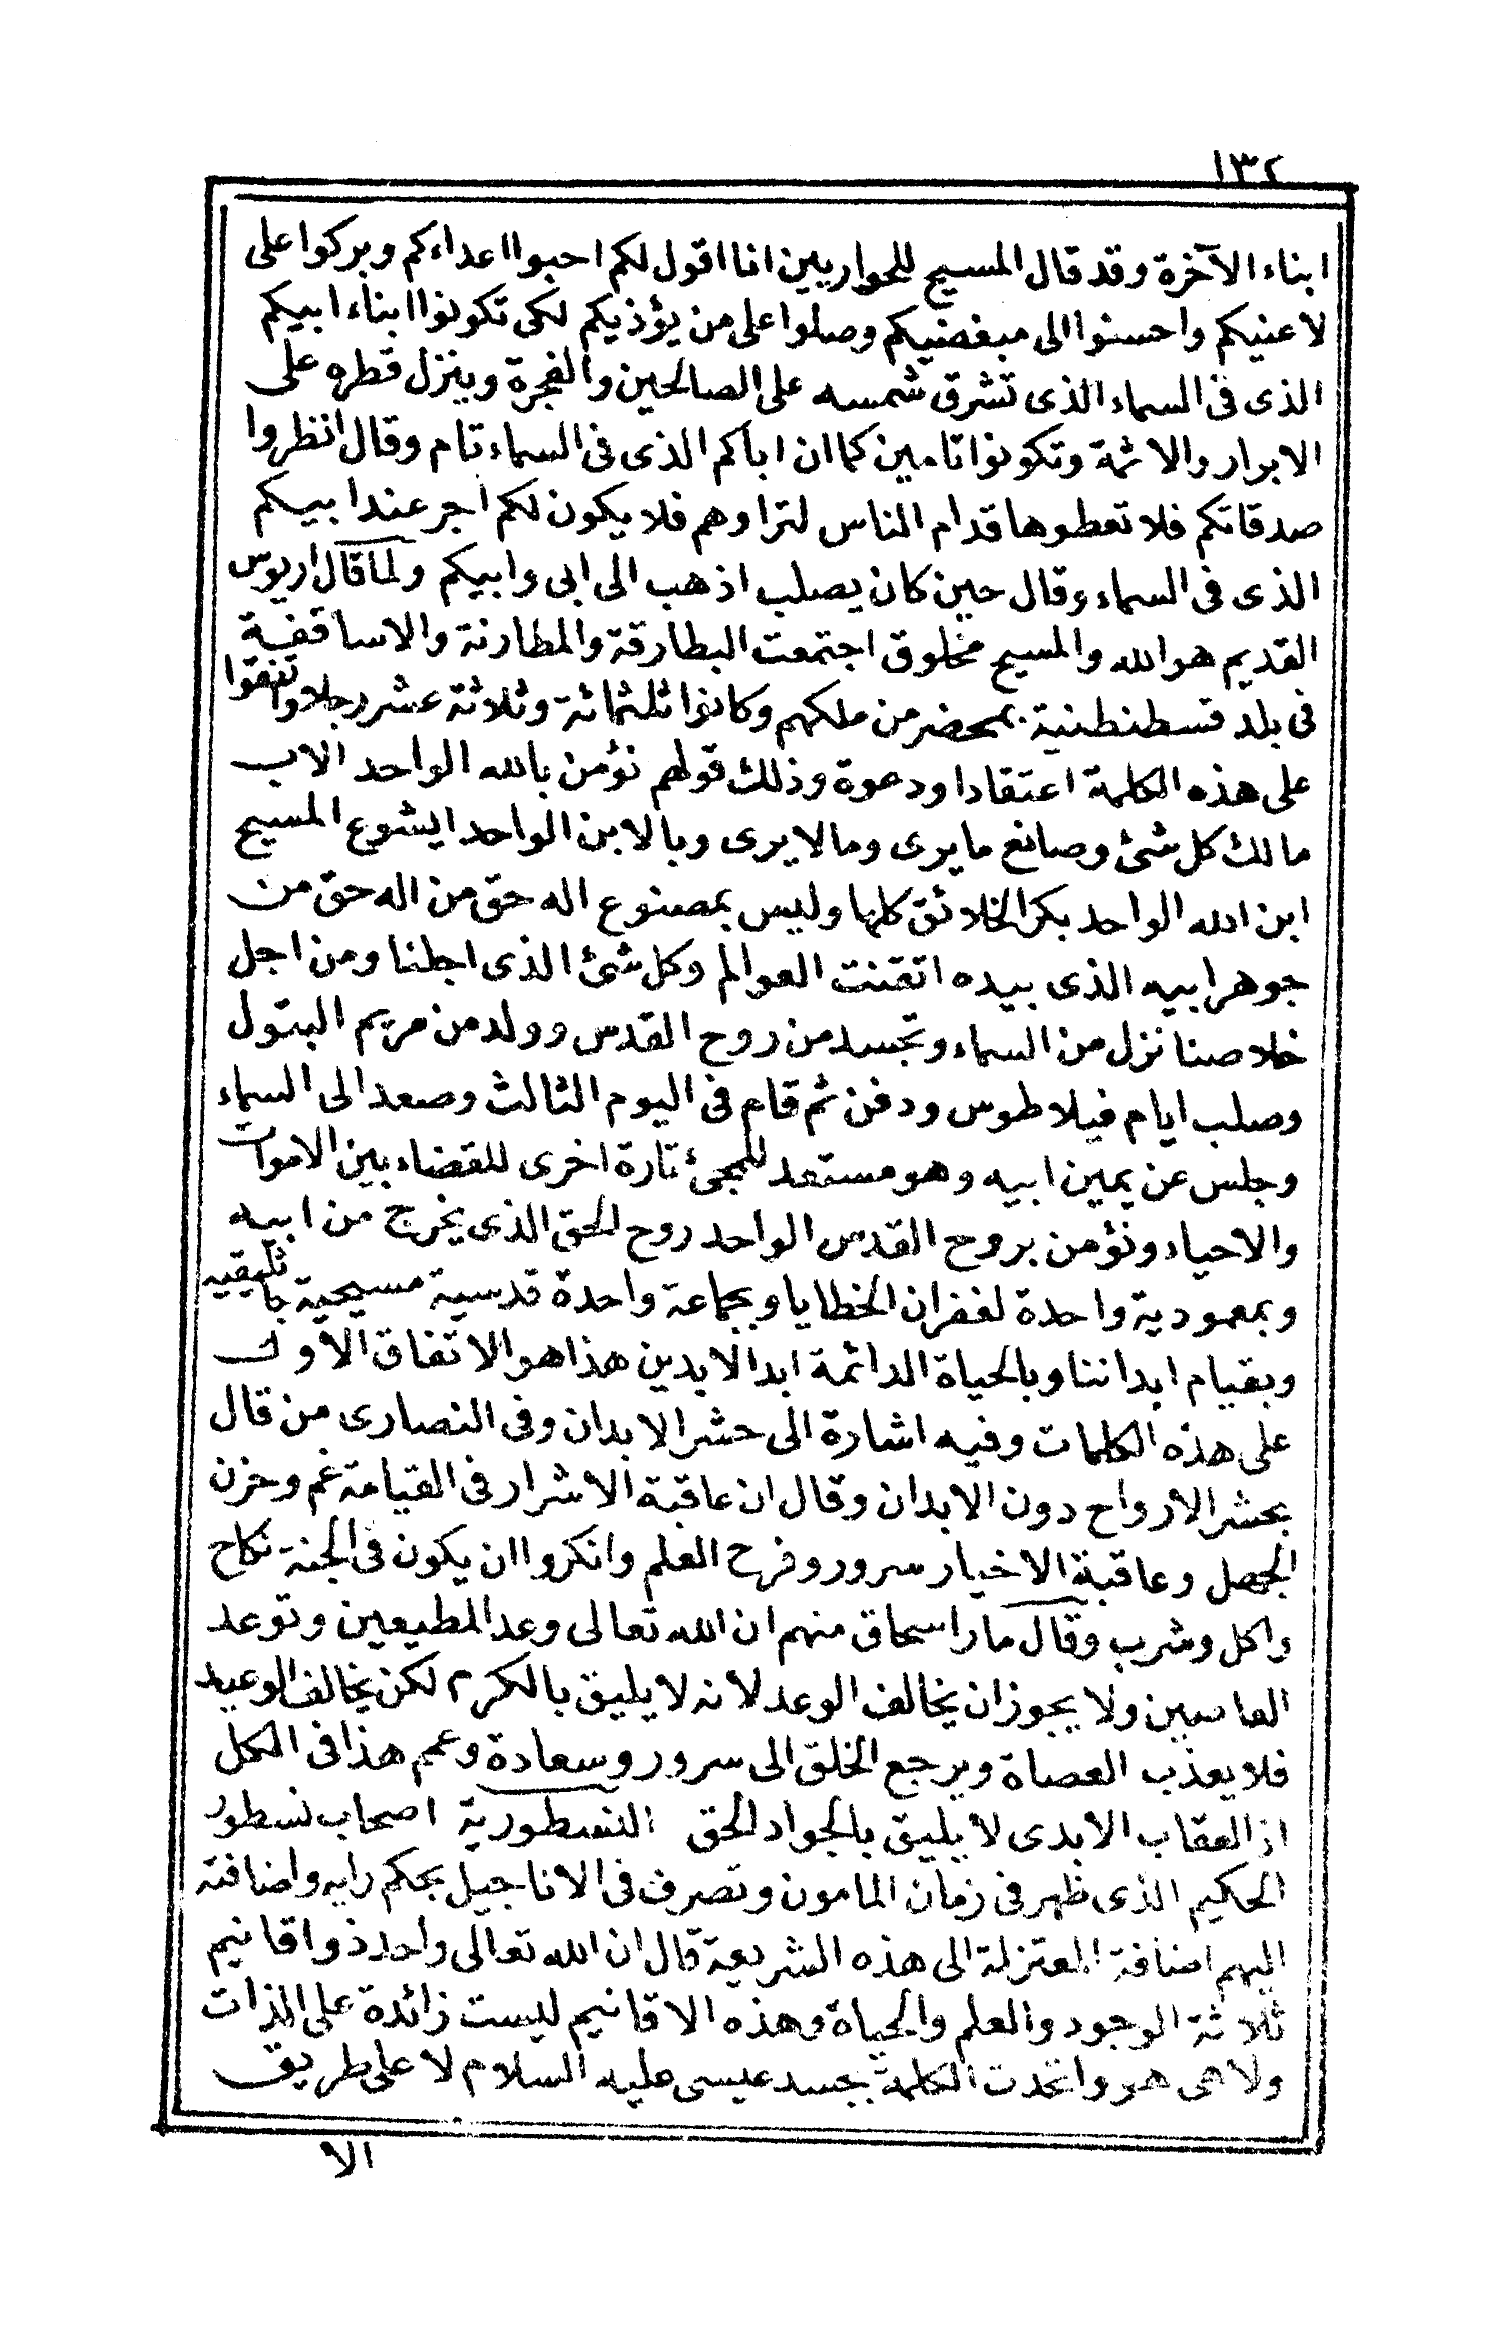 ١٣٢
ابناء الآخرة وقد قال المسيح للحواريين انا اقول لكم احبوا اعداءكم وبركوا على
لاعنيكم واحسنوا الى مبغضيكم وصلوا على من يؤذيكم لكى تكونوا ابناء ابيكم
الذى فى السماء الذى تشرق شمسه على الصالحين والفجرة وينزل قطره على
الابرار والاثمة وتكونوا تامين كما ان اباكم الذى فى السماء تام وقال انظروا
صدقاتكم فلا تعطوها قدام الناس لتراوهم فلا يكون لكم اجر عند ابيكم
الذى فى السماء وقال حين كان يصلب اذهب الى ابى وابيكم ولما قال اريوس
القديم هو الله والمسيح مخلوق اجتمعت البطارقة والمطارنة والاساقفة
فى بلد قسطنطنية بمحضر من ملكهم وكانوا ثلثمائة وثلاثة عشر رجلا واتفقوا
على هذه الكلمة اعتقادا ودعوة وذلك قولهم نؤمن بالله الواحد الاب
مالك كل شئ وصانع ما يرى وما لا يرى وبالابن الواحد ايشوع المسيح
ابن الله الواحد بكر الخلائق كلها وليس بمصنوع اله حق من اله حق من
جوهر ابيه الذى بيده اتقنت العوالم وكل شئ الذى اجلنا ومن اجل
خلاصنا نزل من السماء وتجسد من روح القدس وولد من مريم البتول
وصلب ايام فيلاطوس ودفن ثم قام فى اليوم الثالث وصعد الى السماء
وجلس عن يمين ابيه وهو مستعد للمجئ تارة اخرى للقضاء بين الاموات
والاحياء ونؤمن بروح القدس الواحد روح الحق الذى يخرج من ابيه
وبمعمودية واحدة لغفران الخطايا وبجماعة واحدة قدسية مسيحية جاثليقيه
وبقيام ابداننا وبالحياة الدائمة ابد الابدين هذا هو الاتفاق الاول
على هذه الكلمات وفيه اشارة الى حشر الابدان وفى النصارى من قال
بحشر الارواح دون الابدان وقال ان عاقبة الاشرار فى القيامة غم وحزن
الجهل وعاقبة الاخيار سرور وفرح العلم وانكروا ان يكون فى الجنة نكاح
واكل وشرب وقال مار اسحاق منهم ان الله تعالى وعد المطيعين وتوعد
العاصيين ولا يجوز ان يخالف الوعد لانه لا يليق بالكرم لكن يخالف الوعيد
فلا يعذب العصاة ويرجع الخلق الى سرور وسعادة وعمم هذا فى الكل
اذ العقاب الابدى لا يليق بالجواد الحق النسطورية اصحاب نسطور
الحكيم الذى ظهر فى زمان المامون وتصرف فى الاناجيل بحكم رايه واضافته
اليهم اضافة المعتزلة الى هذه الشريعة قال ان الله تعالى واحد ذو اقانيم
ثلاثة الوجود والعلم والحياة وهذه الاقانيم ليست زائدة على الذات
ولا هى هو واتحدت الكلمة بجسد عيسى عليه السلام لا على طريق
الا